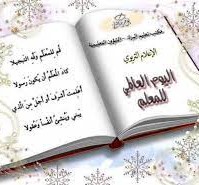 مكتب التعليم - الشؤون التعليمية
الإعلام التربوي
اليوم العالمي
للمعلم
قم للمعلم وفه التبجيلا
كاد المعلم أن يكون رسولا
أعلمت أشرف أو أجل من الذي
يبني وينشئ أنفساً وعقولا